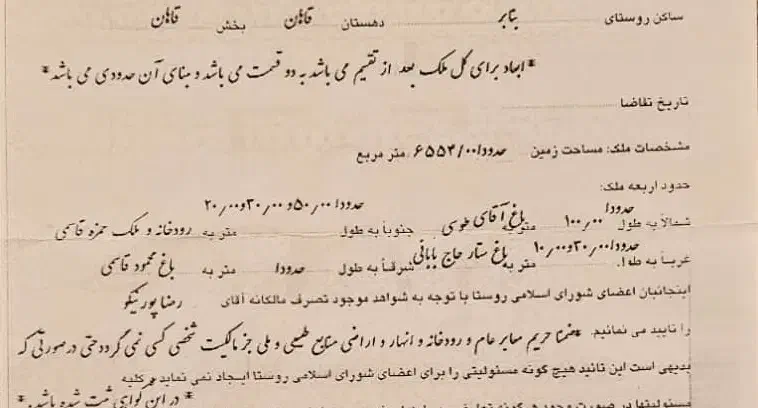 ساکن روستای بنابر دهستان قاهان بخش قاهان
* ابعاد برای کل ملک بعد از تقسیم می باشد به دو قسمت می باشد و مبنای آن حدودی می باشد *
تاریخ تقاضا
مشخصات ملک: مساحت زمین حدودا ۶۵۵۴/۰۰ متر مربع
حدود اربعه ملک:
شمالاً به طول حدودا ۱۰۰٫۰۰ متر به باغ آقای طوسی جنوباً به طول حدودا ۵۰٫۰۰ و ۳۰٫۰۰ و ۲۰٫۰۰ متر به رودخانه و ملک حمزه قاسمی
غرباً به طول حدودا ۳۰٫۰۰ و ۱۰٫۰۰ متر به باغ ستار حاج بابائی شرقاً به طول حدودا متر به باغ محمود قاسمی
اینجانبان اعضای شورای اسلامی روستا با توجه به شواهد موجود تصرف مالکانه آقای رضا پور نیکو
را تایید می نمائیم. * ضمنا حریم معابر عام و رودخانه و انهار و اراضی منابع طبیعی و ملی جز مالکیت شخصی کسی نمی گردد حتی درصورتی که
بدیهی است این تائید هیچ گونه مسئولیتی را برای اعضای شورای اسلامی روستا ایجاد نمی نماید کلیه
* در این گواهی ثبت شده باشد. *
مسئولیتها در صورت وجود هر گونه